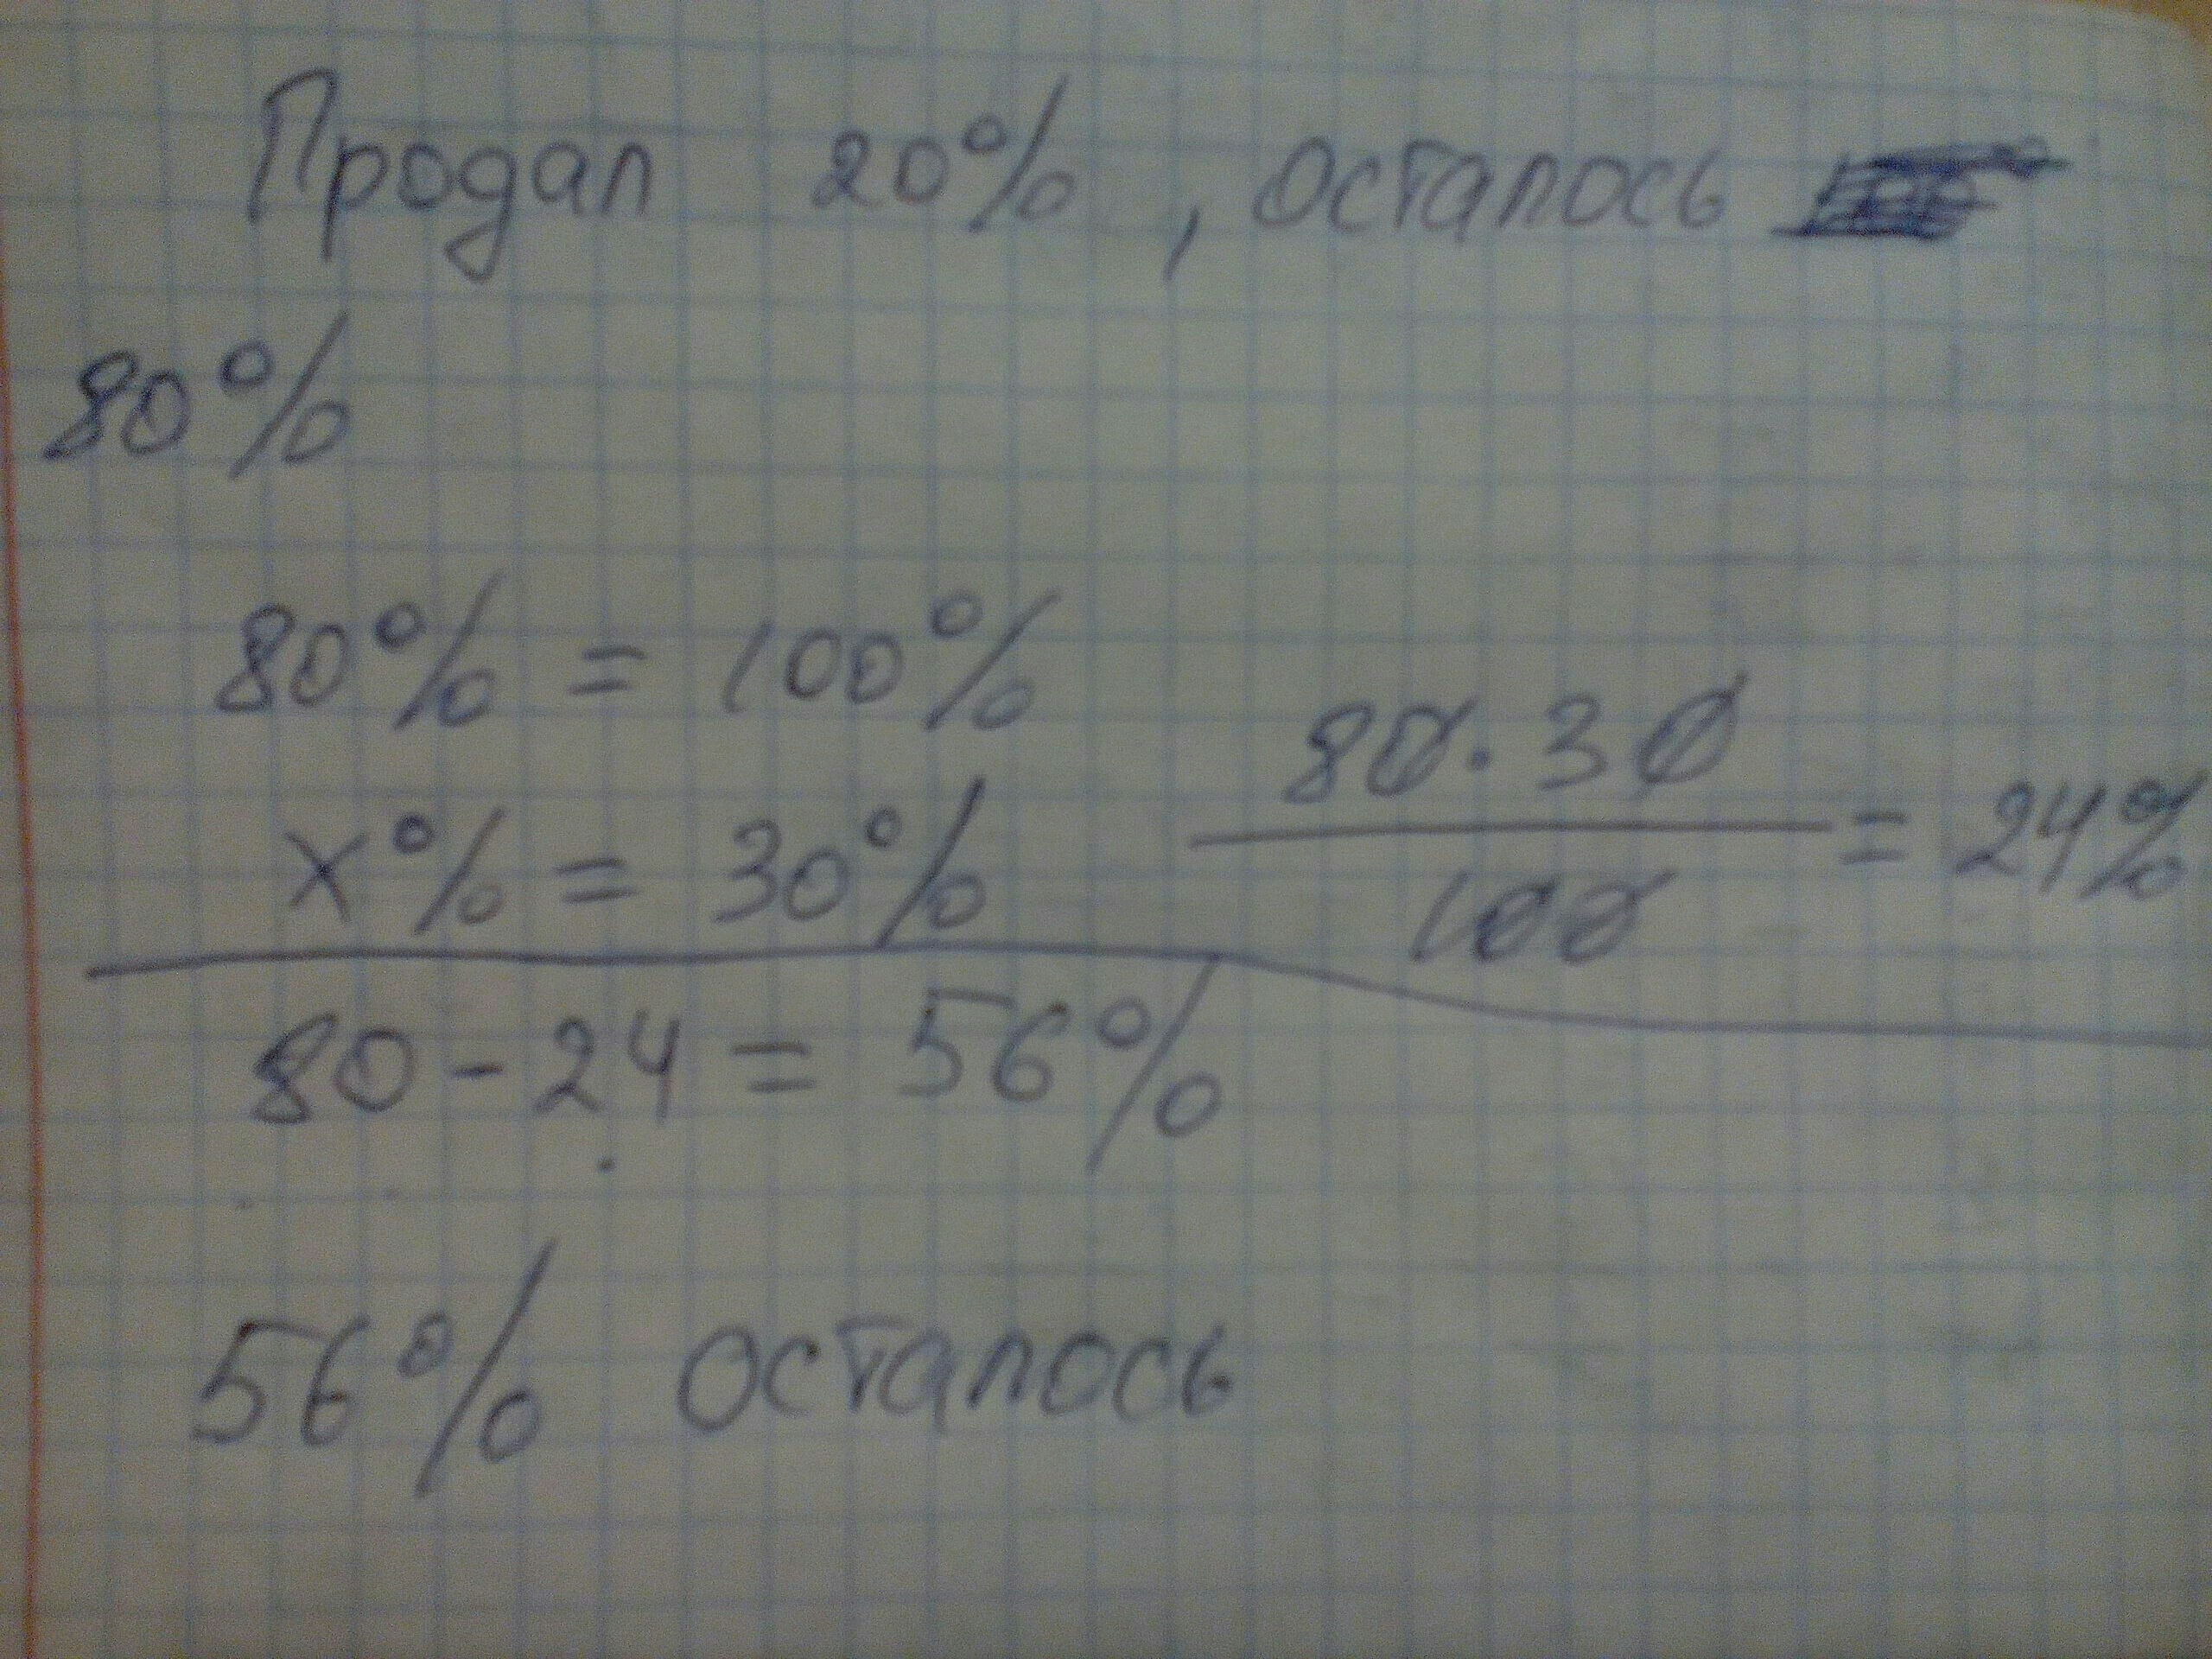 Продал 20%, осталось
80%
80% = 100%
x% = 30%
80·30/100 = 24%
80-24 = 56%
56% осталось